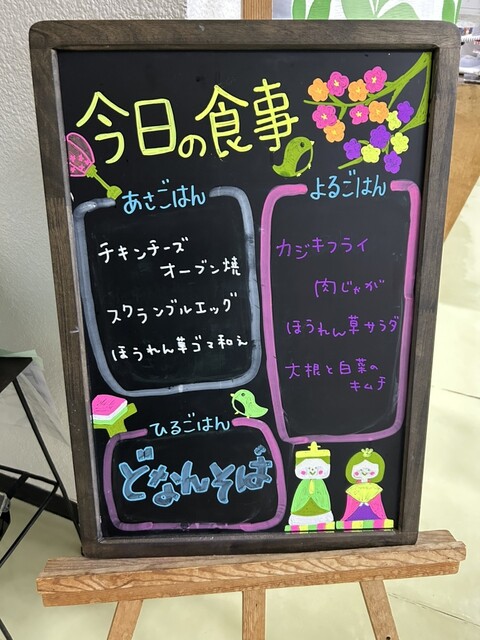 今日の食事
あさごはん
チキンチーズ
オーブン焼
スクランブルエッグ
ほうれん草ゴマ和え
ひるごはん
どなんそば
よるごはん
カジキフライ
肉じゃが
ほうれん草サラダ
大根と白菜の
キムチ